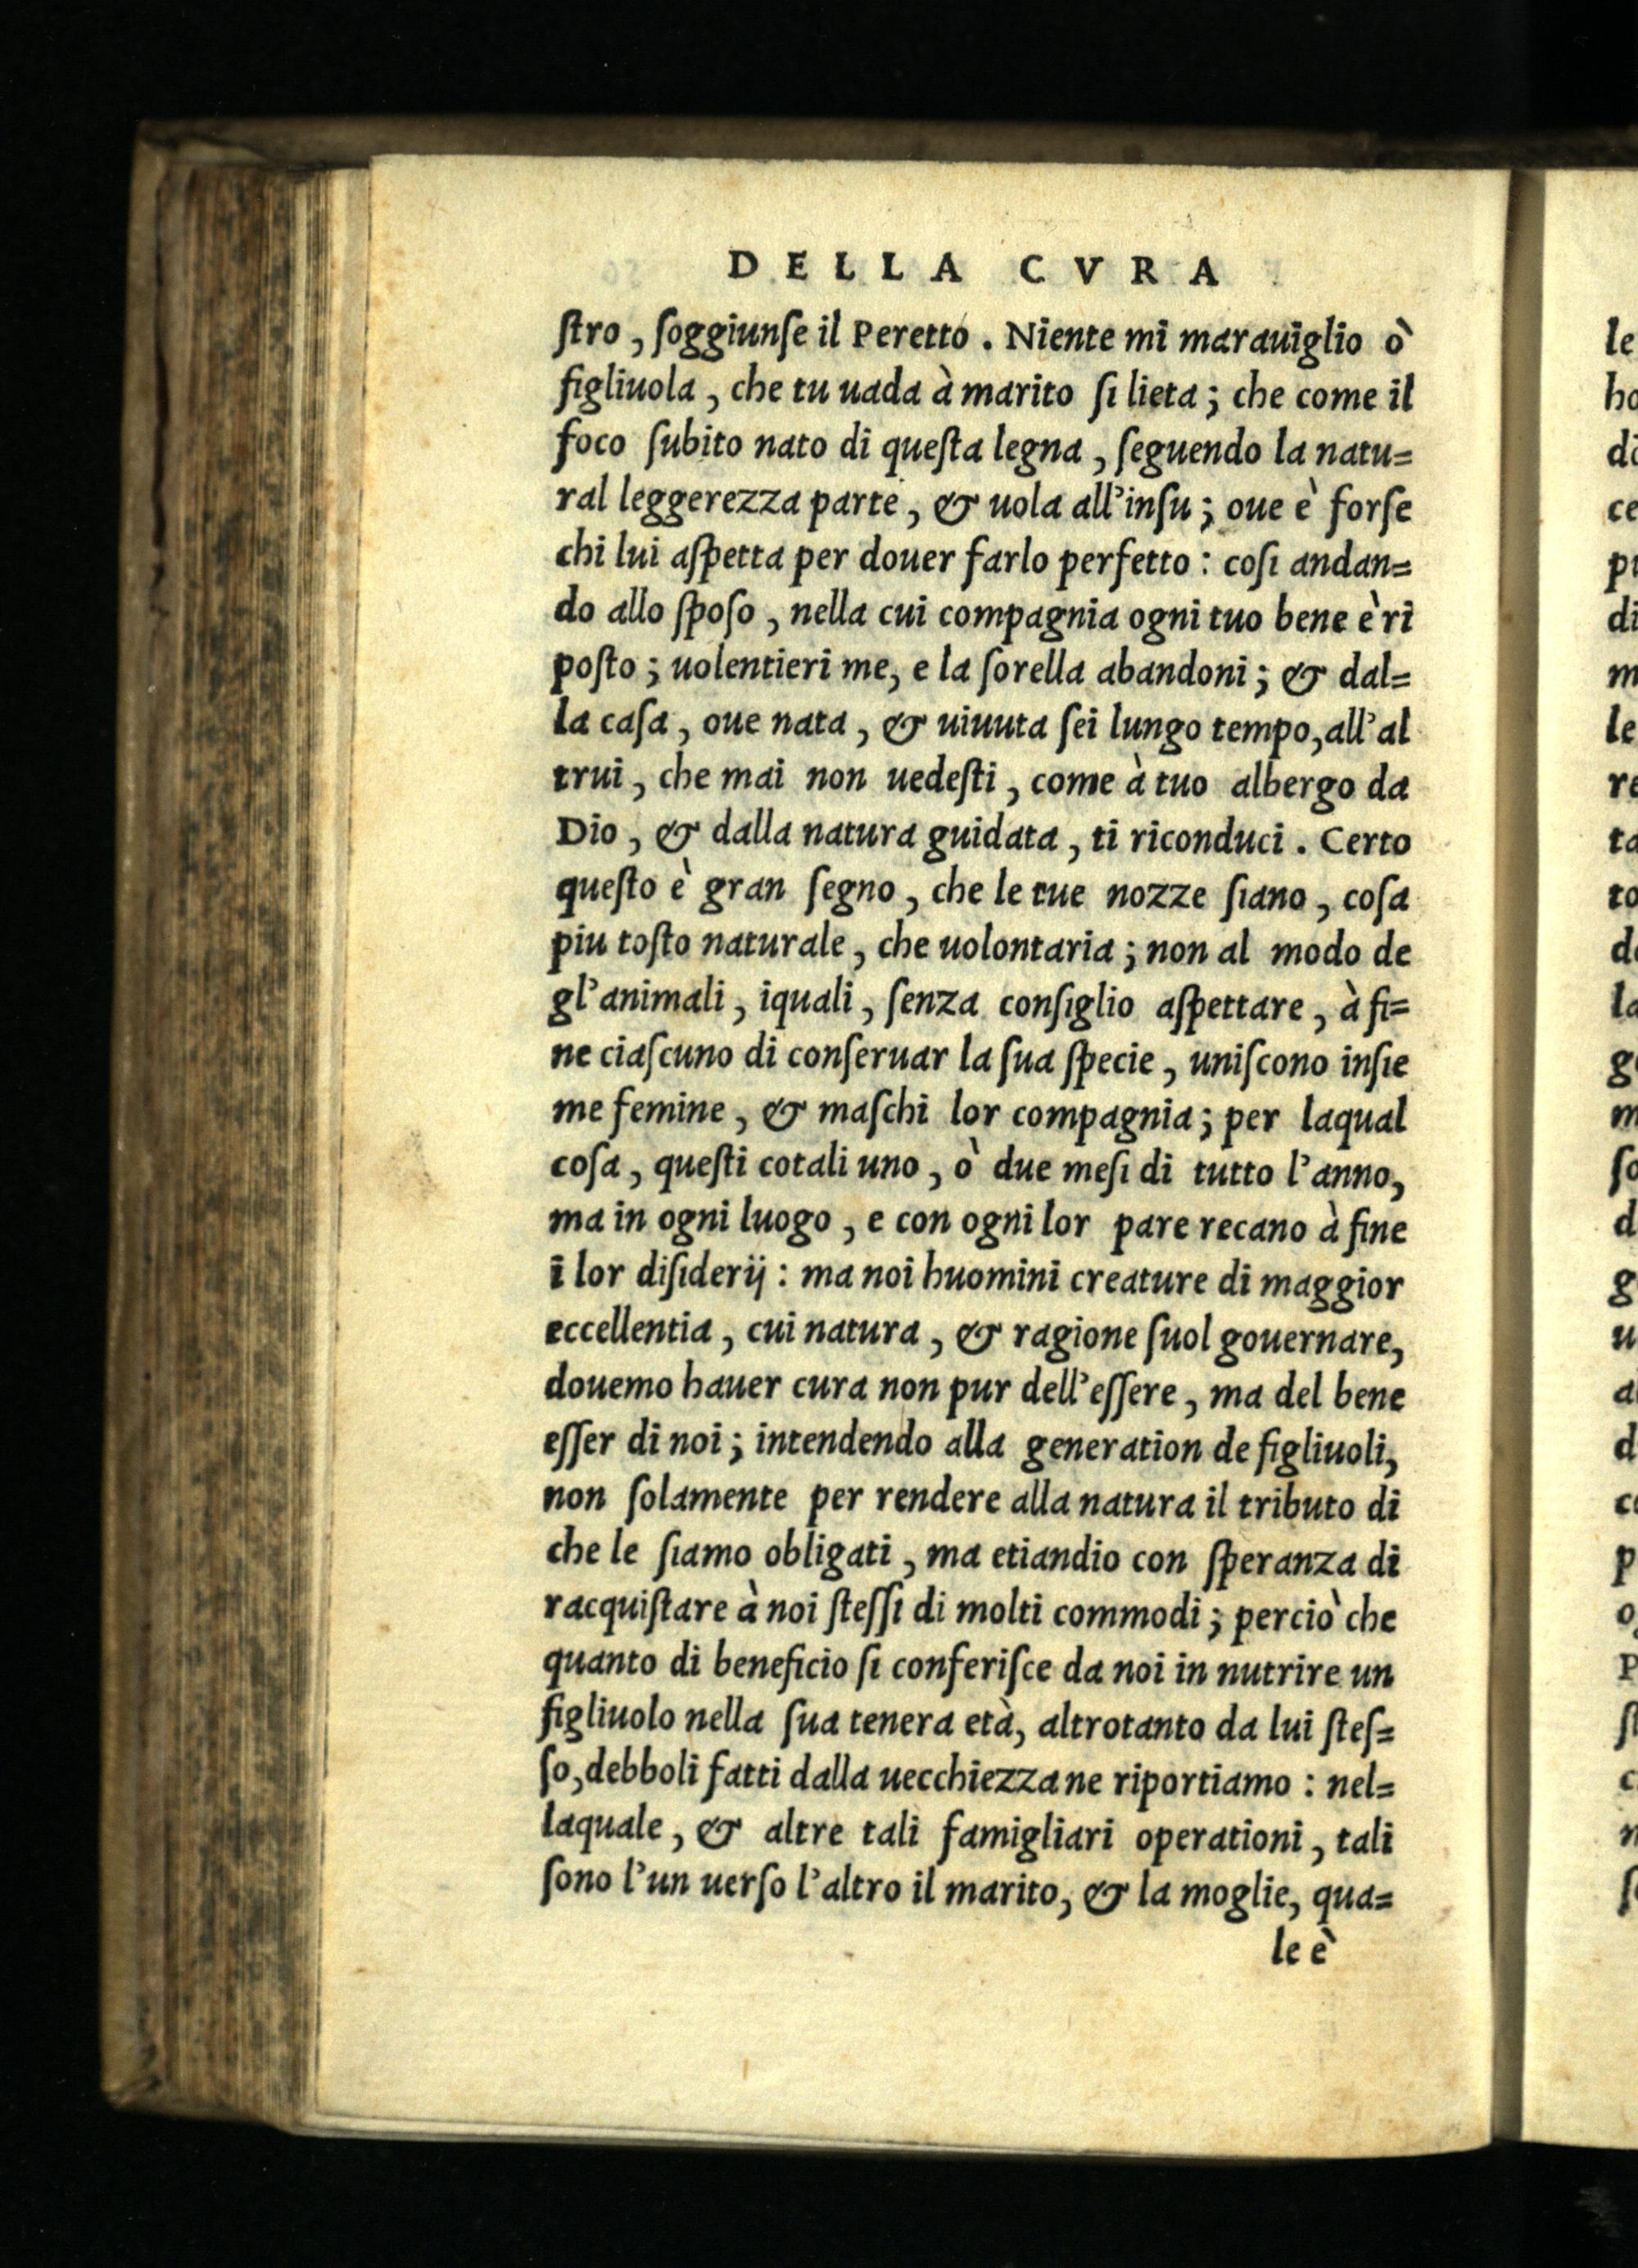 DELLA CVRA
ſtro, ſoggiunſe il Peretto. Niente mi marauiglio ò
figliuola, che tu uada à marito ſi lieta; che come il
foco ſubito nato di queſta legna, ſeguendo la natu=
ral leggerezza parte, & uola all'inſu; oue è forſe
chi lui aſpetta per douer farlo perfetto: coſi andan=
do allo ſpoſo, nella cui compagnia ogni tuo bene è ri
poſto; uolentieri me, e la ſorella abandoni; & dal=
la caſa, oue nata, & uiuuta ſei lungo tempo, all'al
trui, che mai non uedeſti, come à tuo albergo da
Dio, & dalla natura guidata, ti riconduci. Certo
queſto è gran ſegno, che le tue nozze ſiano, coſa
piu toſto naturale, che uolontaria; non al modo de
gl'animali, iquali, ſenza conſiglio aſpettare, à fi=
ne ciaſcuno di conſeruar la ſua ſpecie, uniſcono inſie
me femine, & maſchi lor compagnia; per laqual
coſa, queſti cotali uno, ò due meſi di tutto l'anno,
ma in ogni luogo, e con ogni lor pare recano à fine
i lor diſiderij: ma noi huomini creature di maggior
eccellentia, cui natura, & ragione ſuol gouernare,
douemo hauer cura non pur dell'eſſere, ma del bene
eſſer di noi; intendendo alla generation de figliuoli,
non ſolamente per rendere alla natura il tributo di
che le ſiamo obligati, ma etiandio con ſperanza di
racquiſtare à noi ſteſſi di molti commodi; perciò che
quanto di beneficio ſi conferiſce da noi in nutrire un
figliuolo nella ſua tenera età, altrotanto da lui ſteſ=
ſo, debboli fatti dalla uecchiezza ne riportiamo: nel=
laquale, & altre tali famigliari operationi, tali
ſono l'un uerſo l'altro il marito, & la moglie, qua=
le è